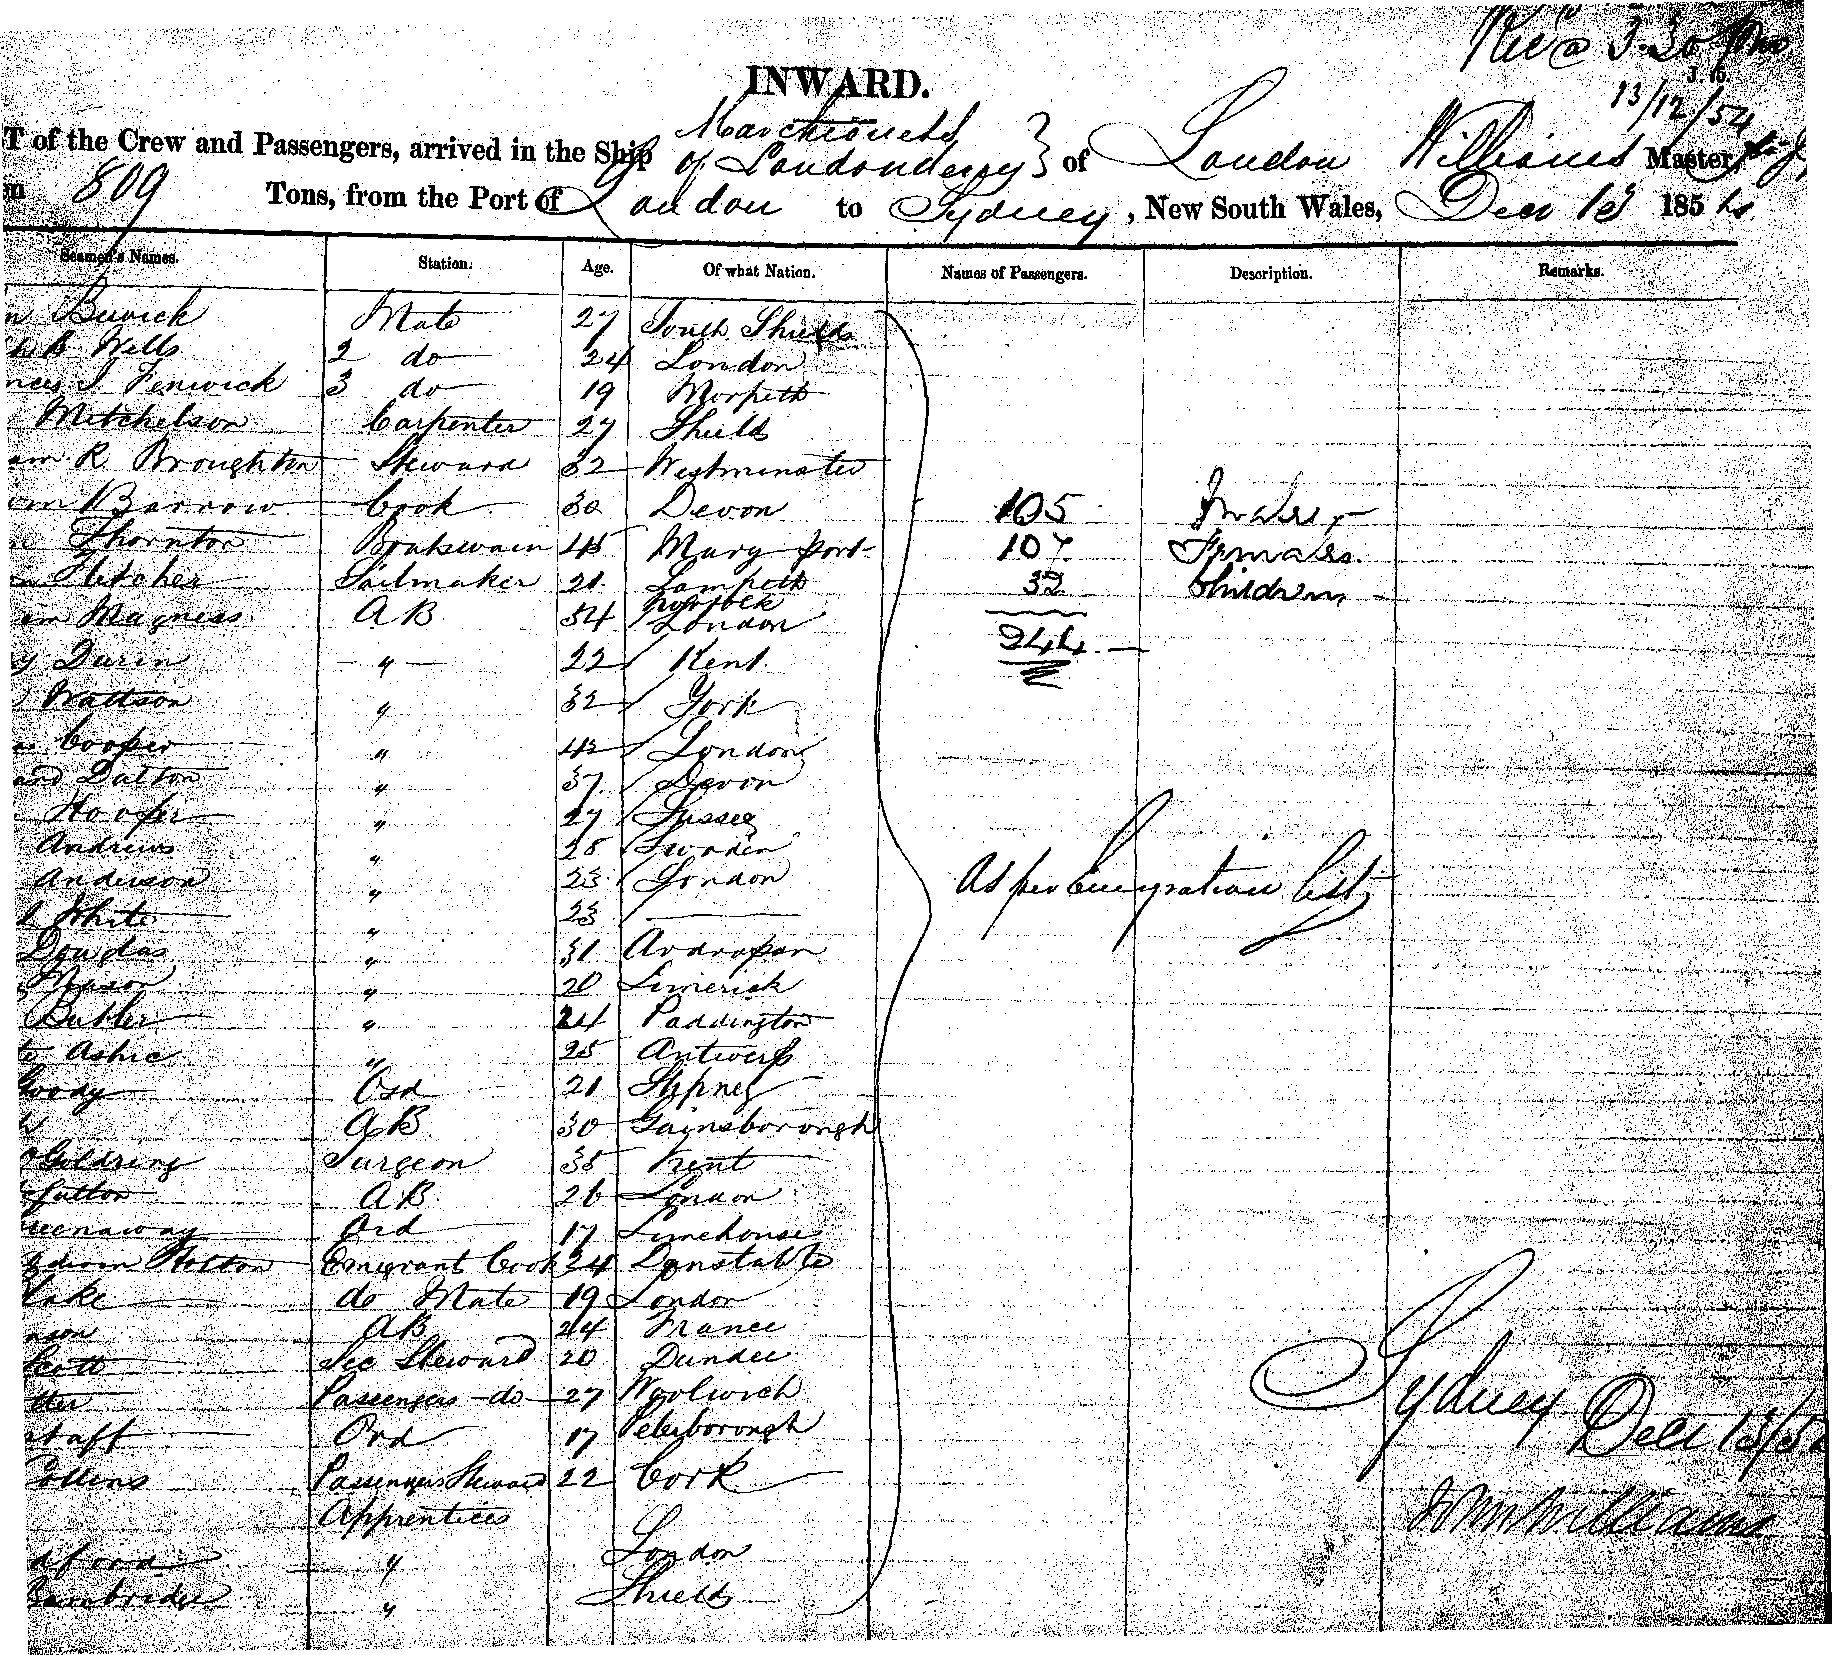 Recd 3.30 pm
J. 15.
13/12/54
INWARD.
T of the Crew and Passengers, arrived in the Ship Marchioness of Londonderry } of London Williams Master
809 Tons, from the Port of London to Sydney, New South Wales, Decr 13 1854
Seamen's Names. Station. Age. Of what Nation. Names of Passengers. Description. Remarks.
Bewick Mate 27 South Shields
B Wells 2 do 24 London
nces J. Fenwick 3 do 19 Morpeth
Mitchelson Carpenter 27 Shields
am R. Broughton Steward 32 Westminster
am Barrow Cook 30 Devon 105 Males
Thornton Boatswain 45 Mary port 107 Females
Fletcher Sailmaker 21 Lambeth 32 Children
am Magness A B 54 Norfolk London 244
y Durin " 22 Kent
Wattson " 32 York
Cooper " 42 London
ard Dalton " 37 Devon
Hooper " 27 Sussex
Andrews " 28 Sweden
Anderson " 23 London As per Emigration List
White " 23
Douglas " 31 Ardrossan
Mason " 20 Limerick
Butler " 24 Paddington
Ashie " 25 Antwerp
Goody Ord 21 Stepney
A B 30 Gainsborough
Goldring Surgeon 35 Kent
Sutton A B 26 London
reenaway Ord 17 Limehouse
Edwin Stolton Emigrant Cook 24 Dunstable
lake do Mate 19 London
nson A B 24 France
Scott Sec Steward 20 Dundee
tter Passengers do 27 Woolwich
staff Ord 17 Peterborough
Collins Passengers Steward 22 Cork
Apprentices
dford " London
Bambridge " Shields
Sydney Decr 13/54
John Williams